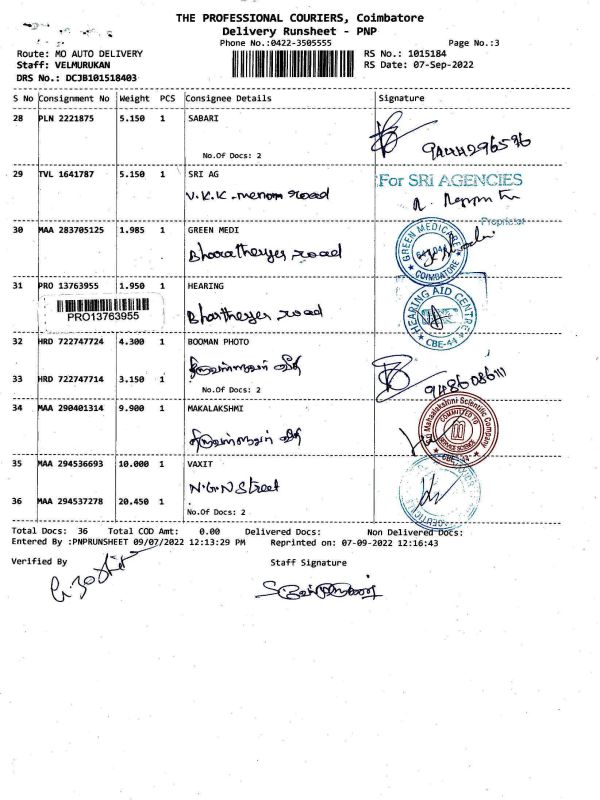 THE PROFESSIONAL COURIERS, Coimbatore
Delivery Runsheet - PNP
Phone No.:0422-3505555
Page No.:3
Route: MO AUTO DELIVERY
RS No.: 1015184
Staff: VELMURUKAN
RS Date: 07-Sep-2022
DRS No.: DCJB101518403
S No Consignment No Weight PCS Consignee Details Signature
28 PLN 2221875 5.150 1 SABARI
No.Of Docs: 2
29 TVL 1641787 5.150 1 SRI AG
For SRI AGENCIES
V.K.K. menon road
Proprietor
30 MAA 283705125 1.985 1 GREEN MEDI
GREEN MEDICARE
COIMBATORE
31 PRO 13763955 1.950 1 HEARING
PRO13763955
HEARING AID CENTRE
CBE-44
32 HRD 722747724 4.300 1 BOOMAN PHOTO
33 HRD 722747714 3.150 1
No.Of Docs: 2
34 MAA 290401314 9.900 1 MAKALAKSHMI
Mahaalakshmi Scientific Company
COMMITTED TO
SERVICE SCIENCE
35 MAA 294536693 10.000 1 VAXIT
N.G.N Street
36 MAA 294537278 20.450 1
No.Of Docs: 2
Total Docs: 36 Total COD Amt: 0.00 Delivered Docs: Non Delivered Docs:
Entered By :PNPRUNSHEET 09/07/2022 12:13:29 PM Reprinted on: 07-09-2022 12:16:43
Verified By
Staff Signature